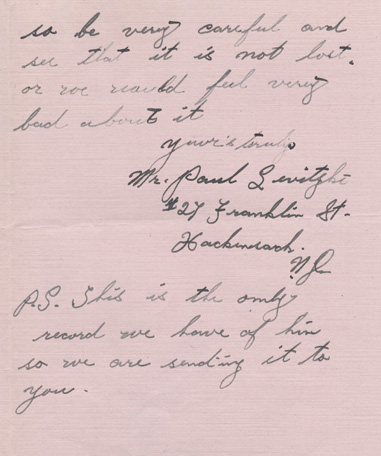 so be very careful and
see that it is not lost.
or we would feel very
bad about it
yours truly
Mr. Paul Levitzke
#27 Franklin St.
Hackensack.
N.J.
P.S. This is the only
record we have of him
so we are sending it to
you.